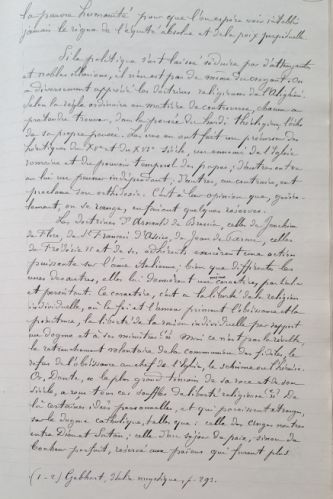 la pauvre humanité pour que l'on espère voir s'établir
jamais le règne de l'équité absolue et de la paix perpétuelle.
Si la politique s'est laissé séduire par d'attrayantes
et nobles illusions, il n'en est pas de même du croyant. On
a diversement apprécié les doctrines religieuses de l'Alighieri.
Selon la règle ordinaire en matière de controverse, chacun a
prétendu trouver, dans la pensée du hardi théologien, l'écho
de sa propre pensée. Les uns en ont fait un précurseur des
hérétiques du XVe et du XVIe siècle, un ennemi de l'Eglise
romaine et du pouvoir temporel des papes; d'autres ont vu
en lui un penseur indépendant; d'autres, au contraire, ont
proclamé son orthodoxie. C'est à leur opinion que, générale-
lement, on se range, en faisant quelques réserves.
Les doctrines d'Arnaud de Brescia, celle de Joachim
de Flore, de St François d'Assise, de Jean de Parme, celles
de Frédéric II et de ses adhérents exercèrent une action
puissante sur l'âme italienne; bien que différentes les
unes des autres, elles lui donnèrent un même caractère particulier
et persistant. Ce caractère, c'est "la liberté de la religion
individuelle, où la foi et l'amour priment l'obéissance et la
pénitence, la liberté de la raison individuelle par rapport
au dogme et à ses ministres" (1) Mais ce n'est pas la révolte,
le retranchement volontaire de la communion des fidèles, le
refus de l'obéissance au chef de l'Eglise, le schisme ou l'hérésie.
Or, Dante, "le plus grand témoin de sa race et de son
siècle, a reçu tous ces souffles de liberté religieuse" (2) De
là certaines idées personnelles, et qui paraissent étranges,
sur le dogme catholique, telle que: celle des Anges neutres
entre Dieu et Satan; celle d'un séjour de paix, sinon de
bonheur parfait, réservé aux païens qui furent plus
(1-2) Gebhart, Italie mystique, p. 293.